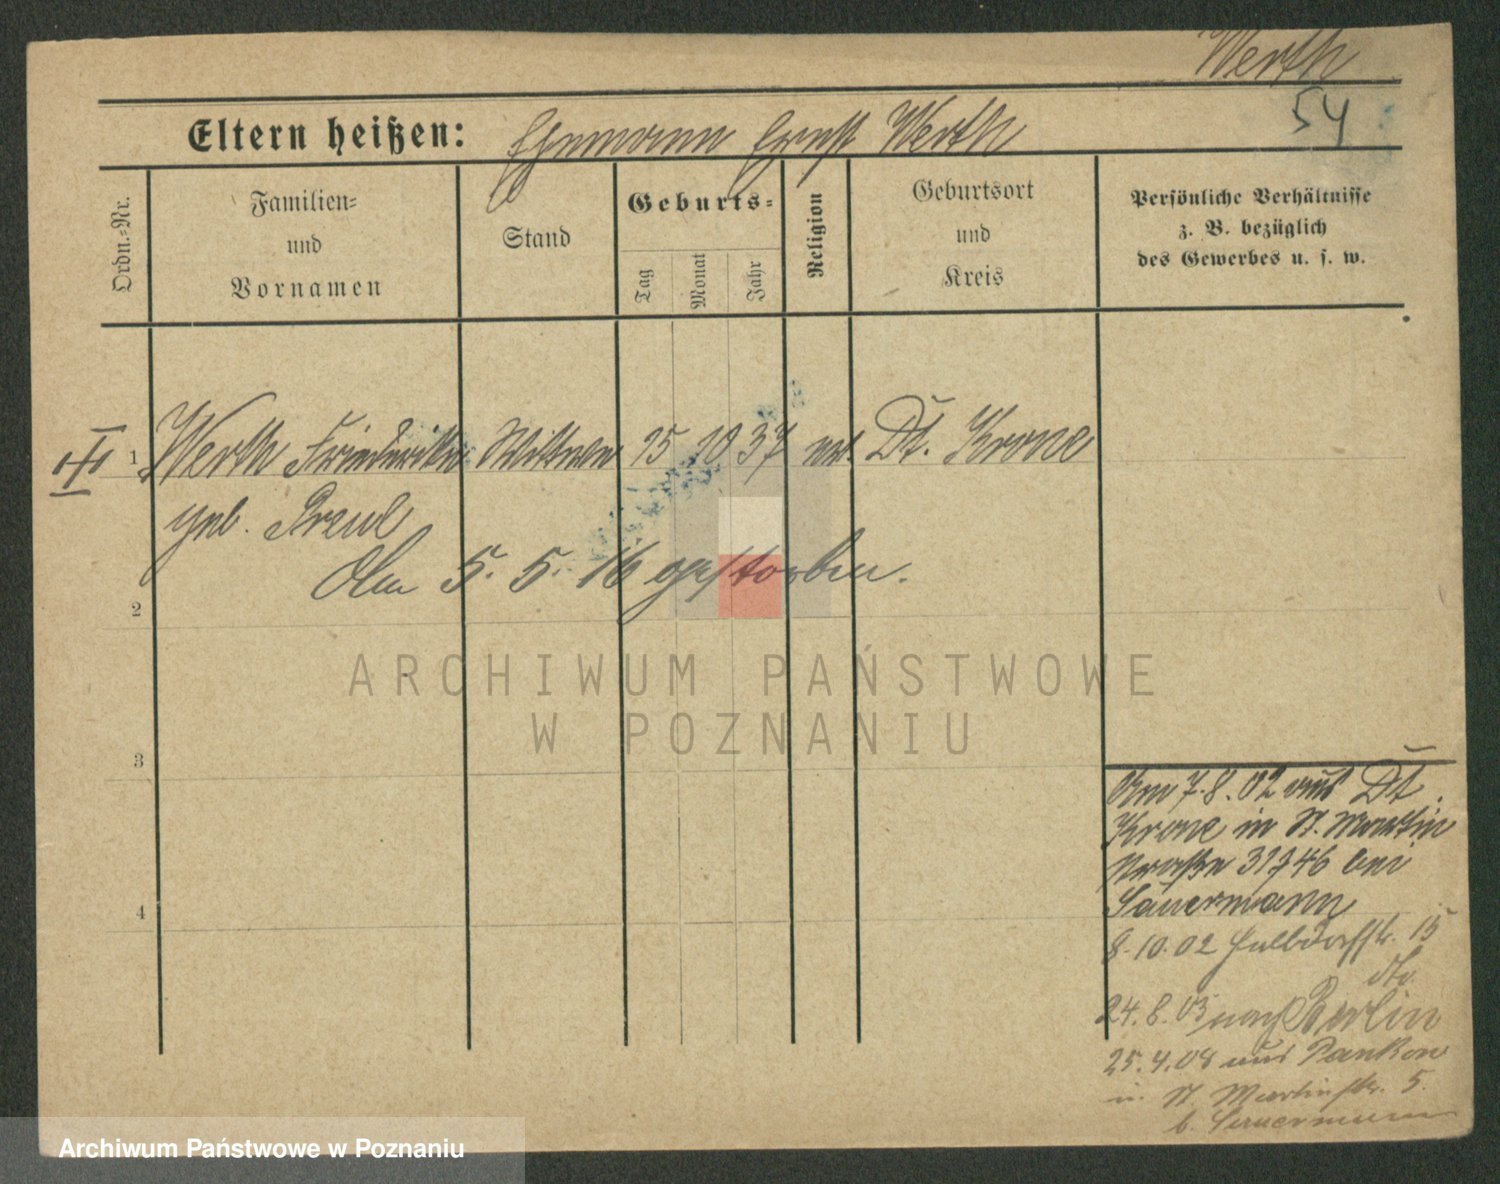 Werth
54
Eltern heißen: Ehemann Ernst Werth
Ordn.-Nr.
Familien-
und
Vornamen
Stand
Geburts-
Tag
Monat
Jahr
Religion
Geburtsort
und
Kreis
Persönliche Verhältnisse
z. B. bezüglich
des Gewerbes u. s. w.
1 Werth Friederike Wittwe 15 10 37 Dt. Krone
geb. Preul
Am 5. 5. 16 gestorben.
2
ARCHIWUM PAŃSTWOWE
W POZNANIU
3
4
Am 7.8.02 aus Dt.
Krone in St. Martin
Straße 31/46 bei
Sauermann
8.10.02 15
24.8.03 nach Berlin
25.4.08 aus Pankow
in St Martinstr. 5.
b. Sauermann
Archiwum Państwowe w Poznaniu